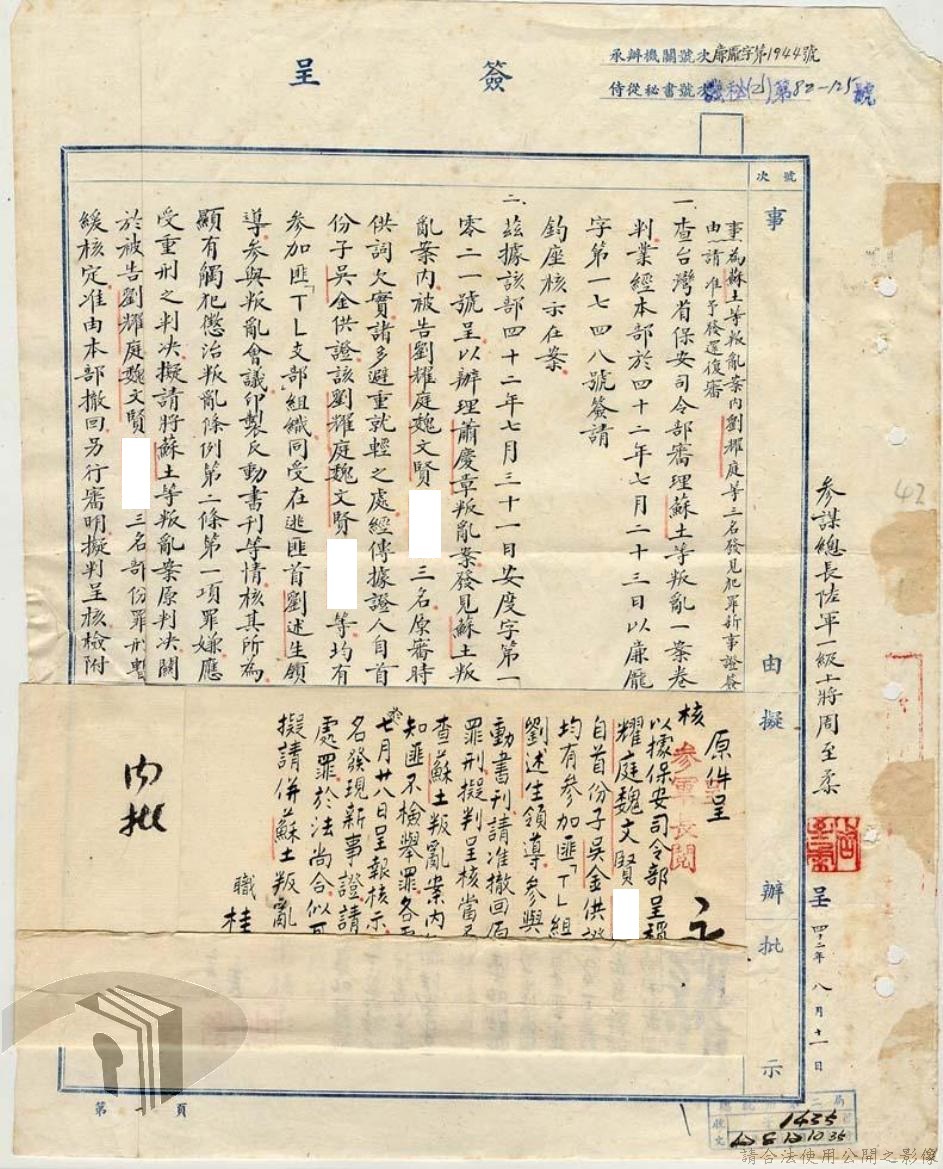 簽呈
承辦機關號次廉龐字第1944號
侍從秘書號次機秘(乙)第82-125號
號次
事由擬辦批示
事由 為蘇土等叛亂案內劉耀庭等三名發見犯罪新事證簽
請准予發還復審
一、查台灣省保安司令部審理蘇土等叛亂一案卷
判業經本部於四十二年七月二十三日以廉龐
字第一七四八號簽請
鈞座核示在案
二、茲據該部四十二年七月三十一日安度字第一
零二一號呈以辦理蕭慶章叛亂案發見蘇土叛
亂案內被告劉耀庭魏文賢 三名原審時
供詞欠實諸多避重就輕之處經傳據證人自首
份子吳金供證該劉耀庭魏文賢 等均有
參加匪「TL支部組織同受在逃匪首劉述生領
導參與叛亂會議印製反動書刊等情核其所為
顯有觸犯懲治叛亂條例第二條第一項罪嫌應
受重刑之判決擬請將蘇土等叛亂案原判決關
於被告劉耀庭魏文賢 三名部份罪刑暫
緩核定准由本部撤回另行審明擬判呈核檢附
參謀總長陸軍一級上將周至柔
呈
四十二年八月十一日
42
原件呈
核
參軍長閱
以據保安司令部呈稱
耀庭魏文賢
自首份子吳金供證
均有參加匪「T L組
劉述生領導參與
動書刊請准撤回原
罪刑擬判呈核當否
查蘇土叛亂案內
知匪不檢舉罪各
七月廿八日呈報核示
名發現新事證請
處罪於法尚合似可
擬請併蘇土叛亂
職桂
內批
第一頁
1435
請合法使用公開之影像